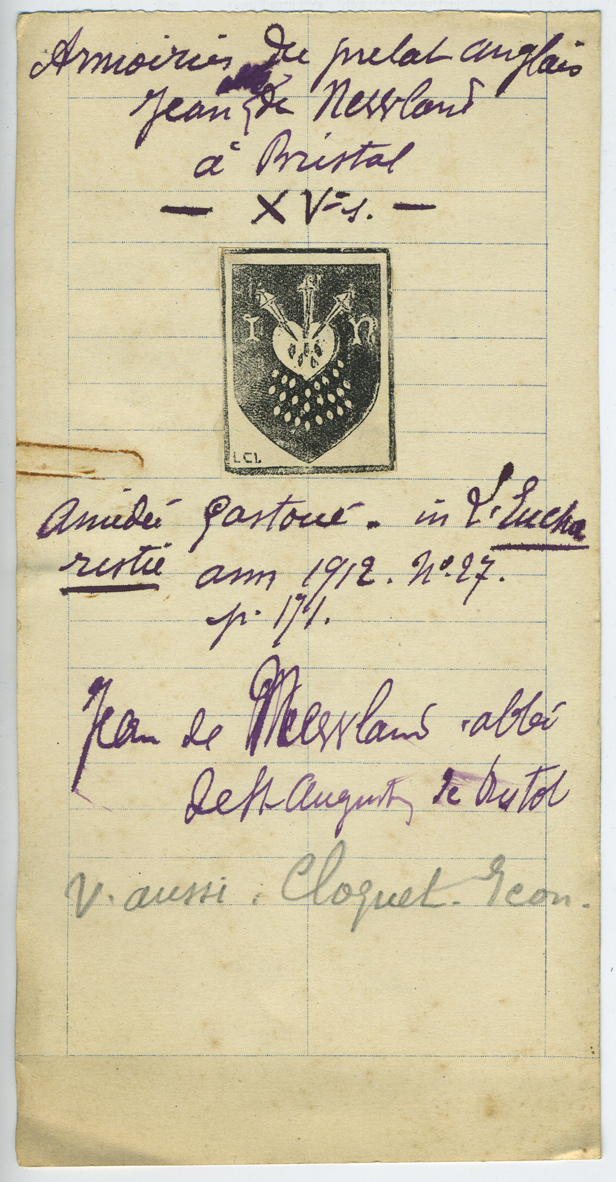 Armoiries du prelat anglais
Jean de Newland
à Bristol
— XVe s. —
I N
LCL
Amédée Gastoué. in L'Eucha
ristie ann 1912. No. 27.
p. 171.
Jean de Newland abbé
de St Augustin de Bristol
V. aussi. Cloquet. Icon.